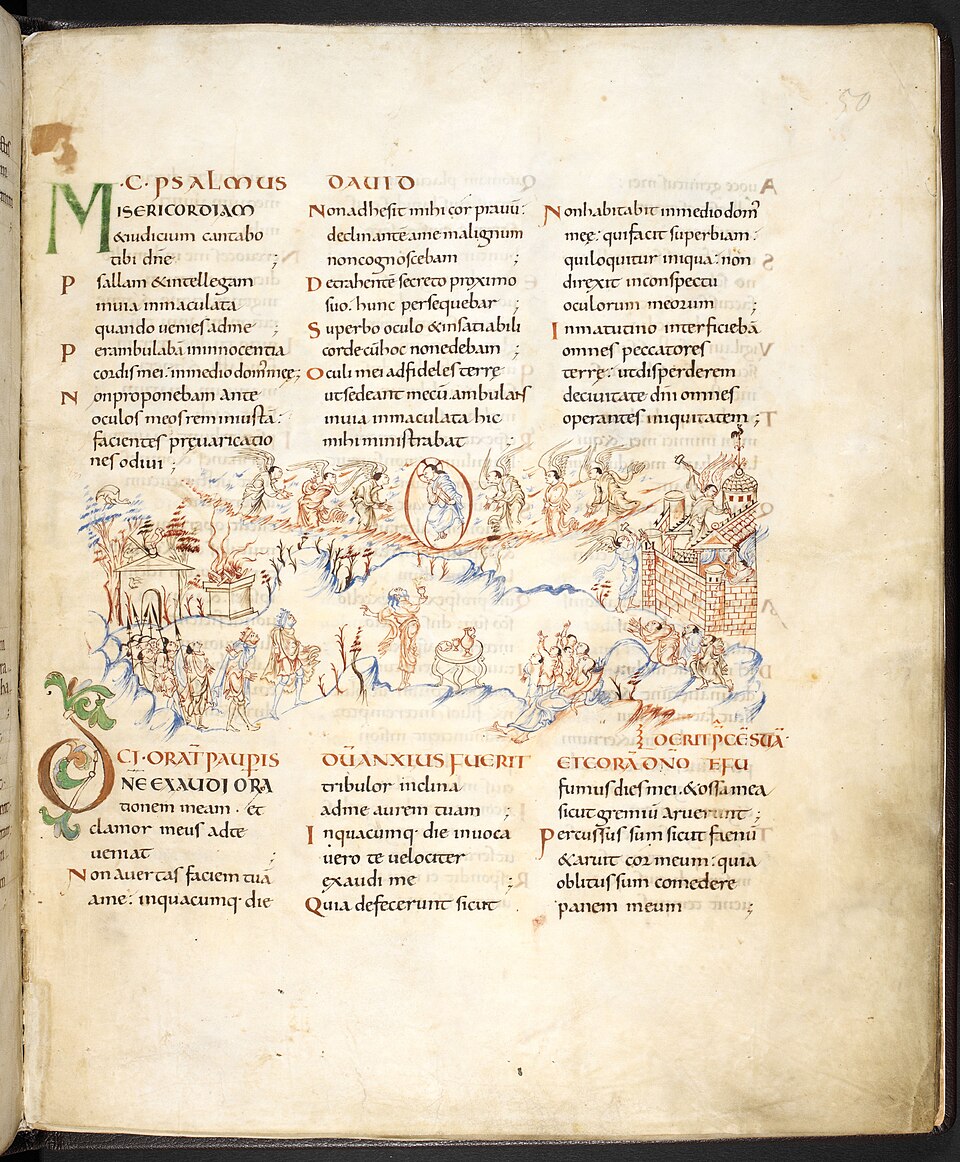 50
·C· PSALMUS DAUID
MISERICORDIAM
&iudicium cantabo
tibi dn̄e ;
Psallam &intellegam
inuia inmaculata
quando uenies adme ;
Perambulabā ininnocentia
cordismei· inmedio dom' meę ;
Nonproponebam ante
oculos meos rem iniustā·
facientes pręuaricatio
nes odiui ;
Nonadhesit mihi cor prauū :
declinantē ame malignum
non cognoscebam ;
Detrahentē secreto proximo
suo· hunc persequebar ;
Superbo oculo &insatiabili
corde cū hoc non edebam ;
Oculi mei adfideles terrę
utsedeant mecū· ambulans
inuia inmaculata hic
mihi ministrabat ;
Nonhabitabit inmedio dom'
meę· qui facit superbiam :
qui loquitur iniqua· non
direxit inconspectu
oculorum meorum ;
Inmatutino interficiebā
omnes peccatores
terrę· utdisperderem
deciuitate dn̄i omnes
operantes iniquitatem ;
CI· ORAT̄ PAUP̄IS QŪANXIUS FUERIT
ET CORA DNO EFU
D̄ERIT P̄CĒ SUĀ·
DNE EXAUDI ORA
tionem meam· et
clamor meus adte
ueniat ;
Non auertas faciem tuā
ame· inquacumq· die
tribulor inclina
adme aurem tuam ;
Inquacumq· die inuoca
uero te uelociter
exaudi me ;
Quia defecerunt sicut
fumus dies mei· &ossa mea
sicut gremiū aruerunt ;
Percussus sum sicut faenū
&aruit cor meum : quia
oblitus sum comedere
panem meum ;